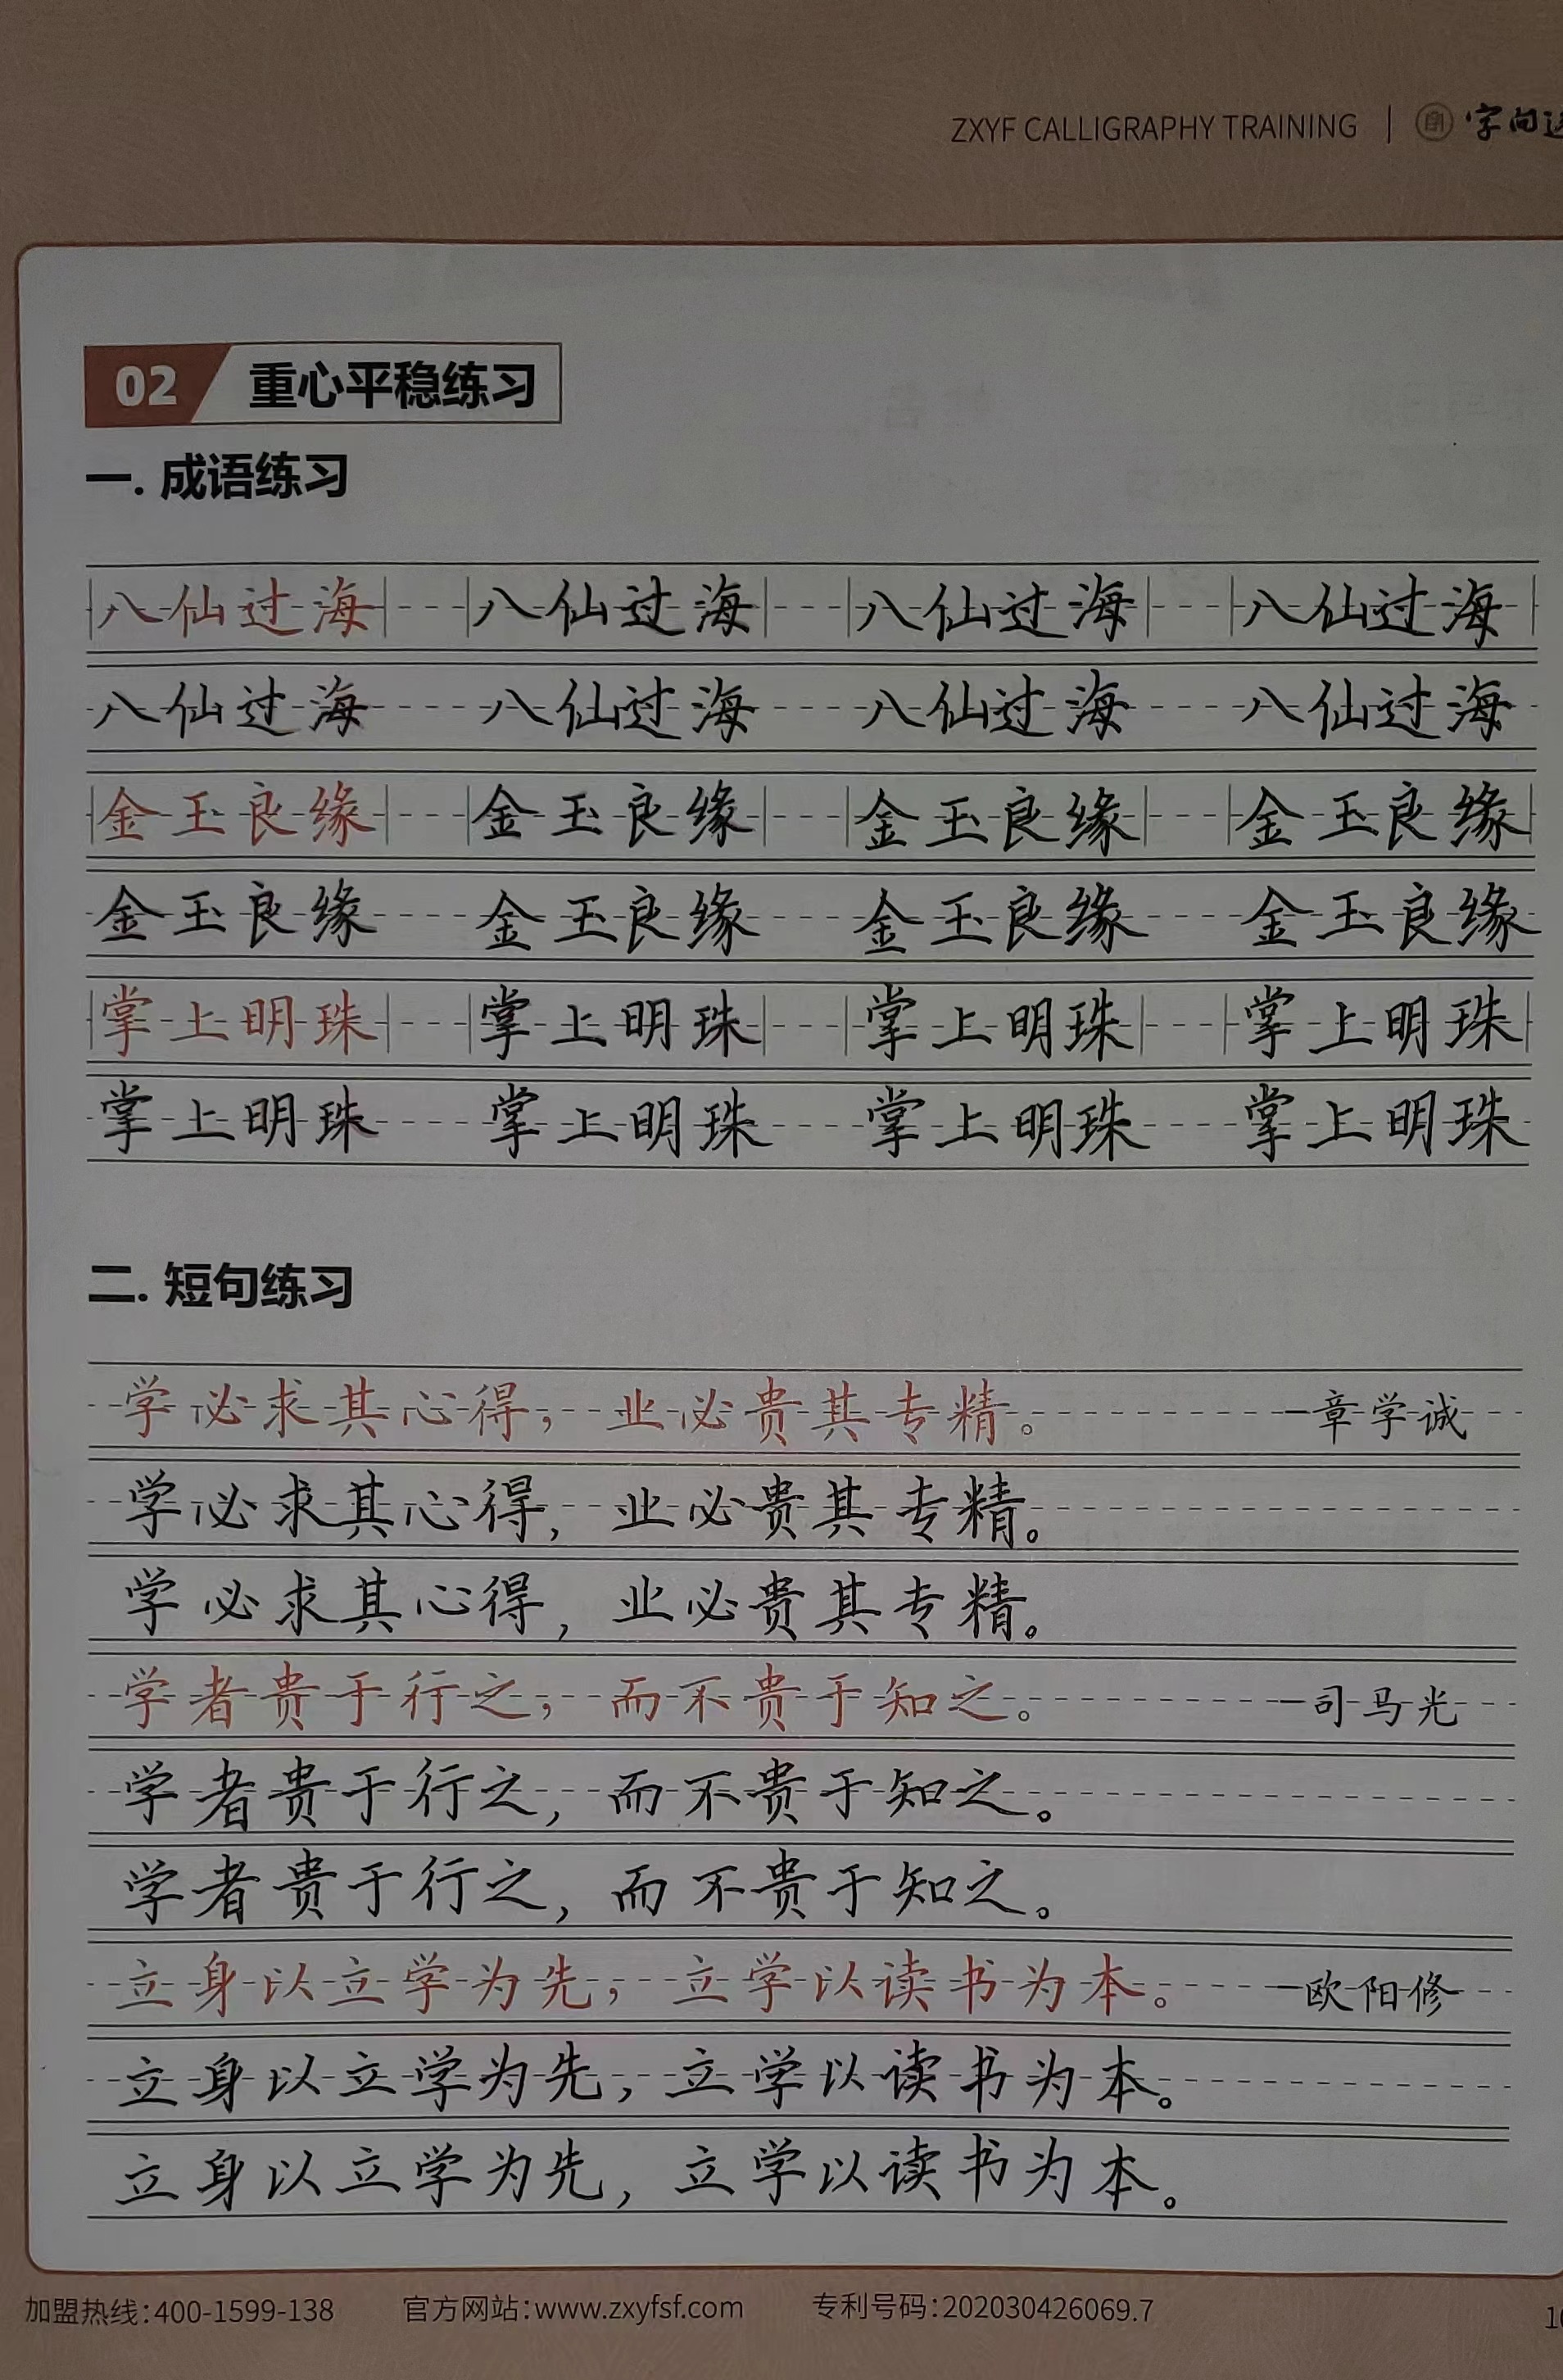 ZXYF CALLIGRAPHY TRAINING | 字向
02 重心平稳练习
一. 成语练习
八仙过海 八仙过海 八仙过海 八仙过海
八仙过海 八仙过海 八仙过海 八仙过海
金玉良缘 金玉良缘 金玉良缘 金玉良缘
金玉良缘 金玉良缘 金玉良缘 金玉良缘
掌上明珠 掌上明珠 掌上明珠 掌上明珠
掌上明珠 掌上明珠 掌上明珠 掌上明珠
二. 短句练习
学必求其心得，业必贵其专精。 —章学诚
学必求其心得，业必贵其专精。
学必求其心得，业必贵其专精。
学者贵于行之，而不贵于知之。 —司马光
学者贵于行之，而不贵于知之。
学者贵于行之，而不贵于知之。
立身以立学为先，立学以读书为本。 —欧阳修
立身以立学为先，立学以读书为本。
立身以立学为先，立学以读书为本。
加盟热线：400-1599-138 官方网站：www.zxyfsf.com 专利号码：202030426069.7